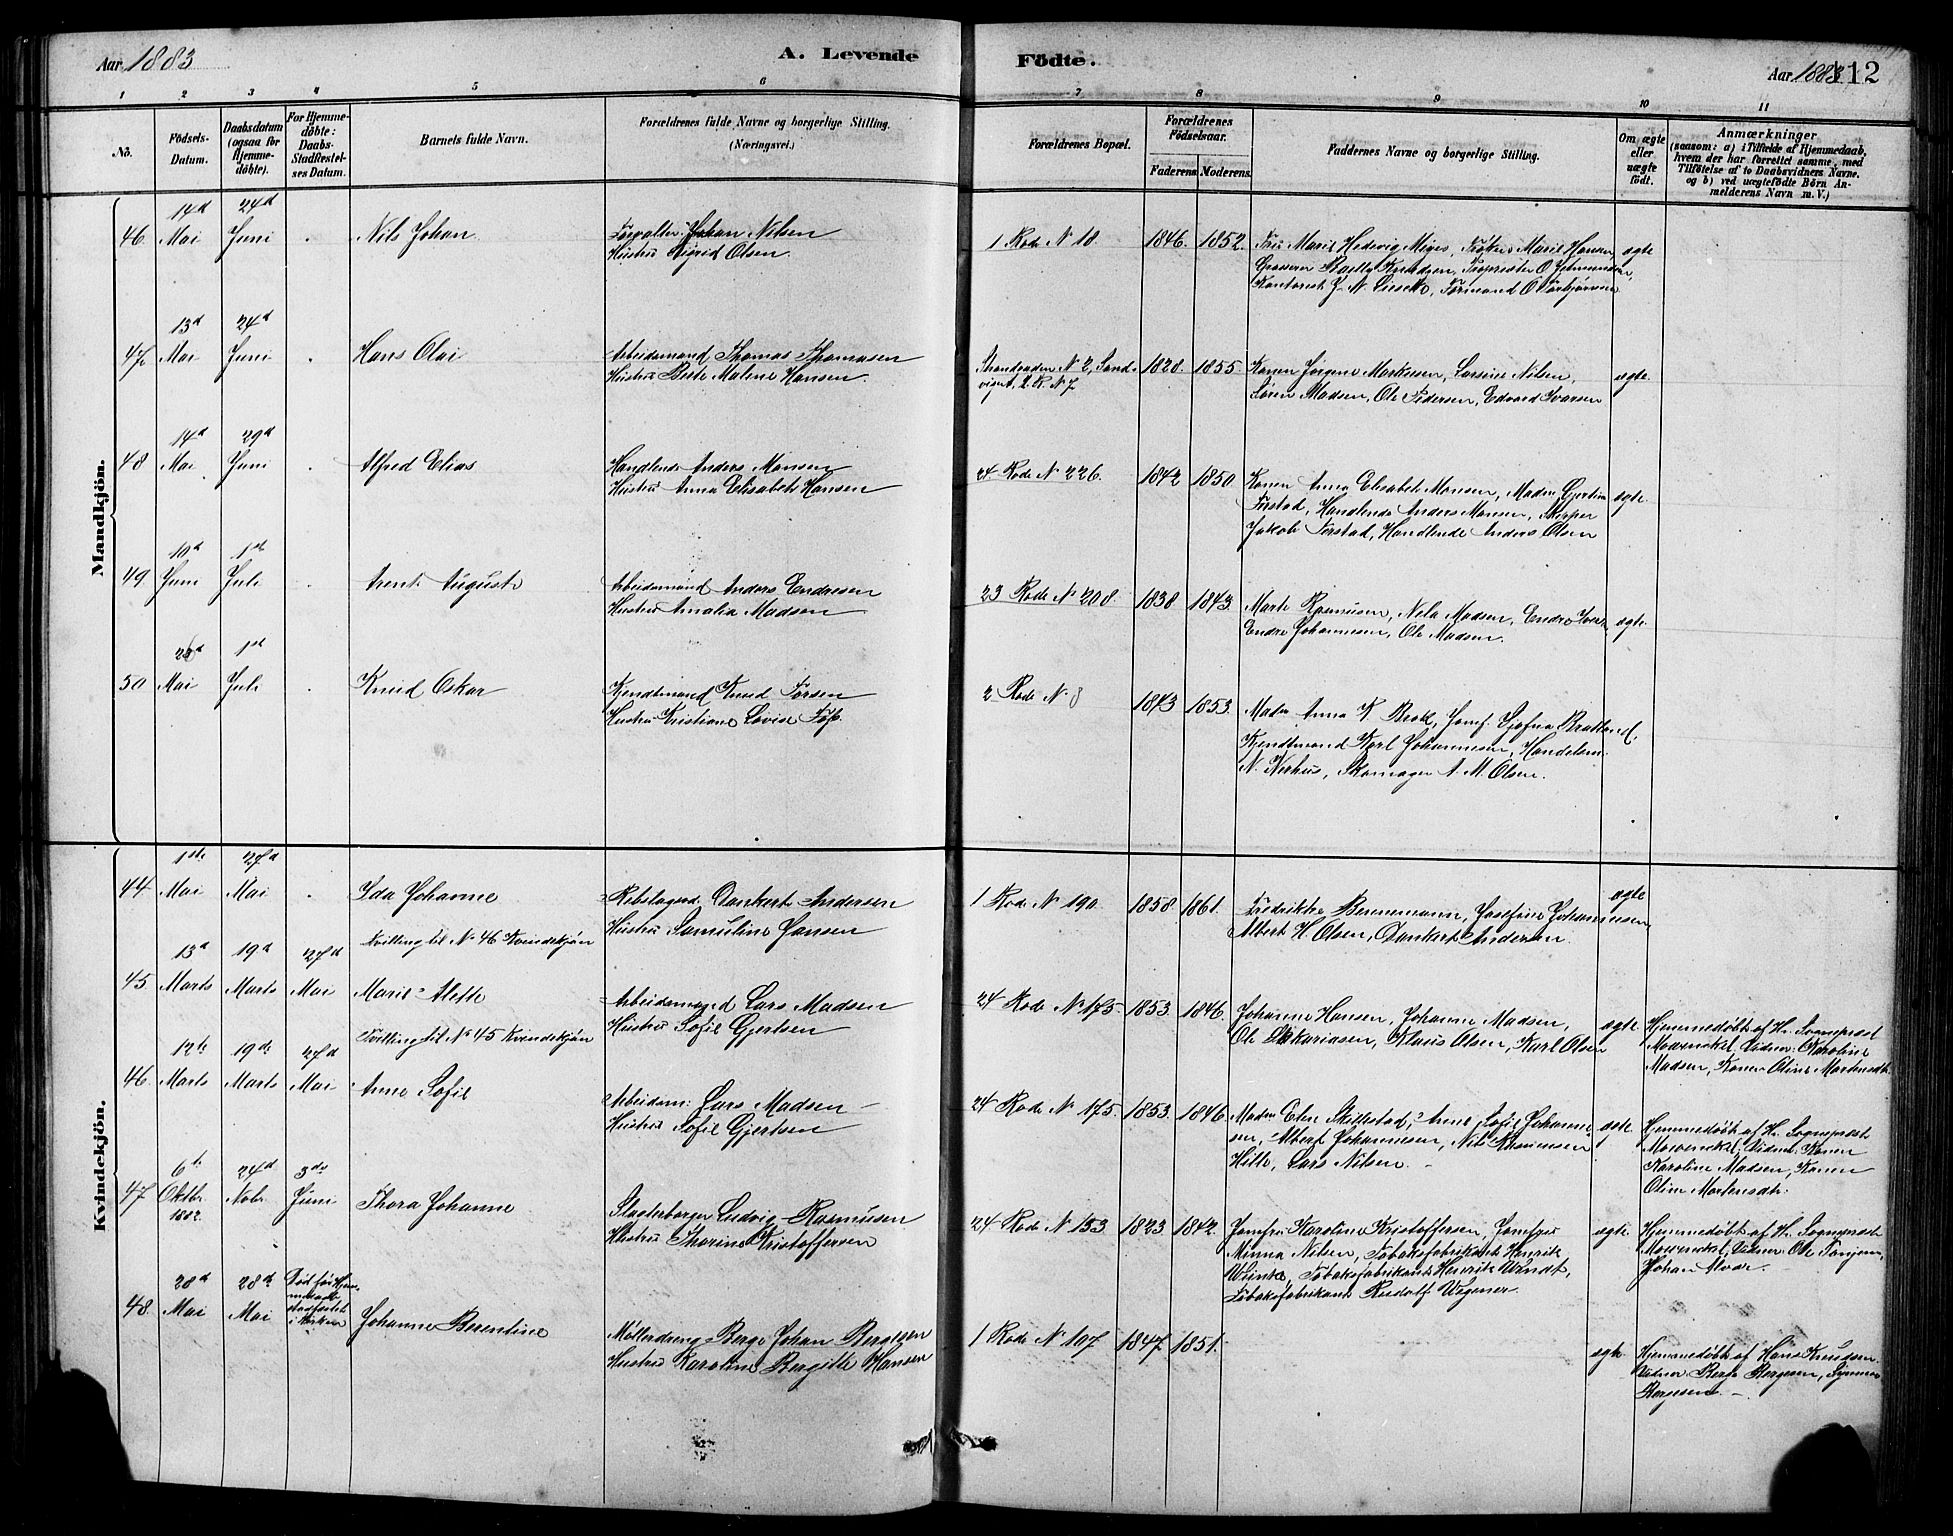 Aar 1883
A. Levende
Födte.
Aar 1883
112
1 2 3 4 5 6 7 8 9 10 11
No.
Födsels-
Datum.
Daabsdatum
(ogsaa for
Hjemme-
døbte).
For Hjemme-
døbte:
Daabs-
Stadfæstel-
ses Datum.
Barnets fulde Navn.
Forældrenes fulde Navne og borgerlige Stilling.
(Næringsvei.)
Forældrenes Bopæl.
Forældrenes
Födselsaar.
Faderens Moderens.
Faddernes Navne og borgerlige Stilling.
Om ægte
eller
uægte
født.
Anmærkninger
(saasom: a) i Tilfælde af Hjemmedaab,
hvem der har forrettet samme, med
Tilföielse af to Daabsvidners Navne.
og b) ved uægtefödte Börn An-
melderens Navn m.V.)
Mandkjön.
46. 14d Mai 24d Juni Nils Johan
Johan Nilsen
Hustru Sigrid Olsen.
1 Rode N 18. 1846. 1852.
Marie Hedevig Frøken Marie Hansen
Knudsen,
Kontorist J. N. Formand O Torbjørnsen
ægte
47. 13d Mai 24d Juni Hans Olai
Arbeidsmand Thomas Thomasen
Hustru Malene Hansen.
N 2, Sand-
viget, 2 R. N 7
1828. 1855.
Konen Jørgine Markusen, Larsine Nilsen,
Søren Madsen, Ole Pedersen, Edvard Ivarsen
ægte.
48 14d Mai 29d Juni Alfred Elias
Handlende Anders Monsen
Hustru Anna Elisabeth Hansen
24 Rode N 226. 1842 1850
Konen Anna Elisabeth Monsen, Madm Gjertine
Handlende Anders Monsen, Skipper
Jakob Handlende Anders Olsen
ægte.
49 10d Juni 1st Juli Arent August
Arbeidsmand Anders Endresen
Hustru Amalia Madsen
23 Rode N 208. 1838 1843.
Marte Rasmusen, Nela Madsen,
Endre Johannesen, Ole Madsen.
ægte.
50 Mai 1st Juli Knud Oskar
Kjendtmand Knud
Hustru Kristiane Lovise
2 Rode N. 8 1843 1853.
Madm Anna K Jomf.
Kjendtmand Karl Johannesen, Handelsm.
N. Nerhus, Skomager A. M. Olsen.
Kvindekjön.
44 1ste Mai 27d Mai Ida Johanne
Rebslager Dankert Andersen
Hustru Samuline Hansen
1 Rode N 190. 1858. 1861.
Fredrikke Bennemann, Josefine Johannesen,
Albert H. Olsen, Dankert Andersen.
ægte
Tvilling til No 46 Kvindekjøn
45 13d Marts 19d Marts 27d Mai Marie Alette
Arbeidsmand Lars Madsen
Hustru Sofie Gjertsen
24 Rode N 175. 1853. 1846.
Johanne Hansen, Johanne Madsen,
Ole Sakariasen, Klaus Olsen, Karl Olsen
ægte.
Hjemmedøbt af Hr. Sogneprest
Mowinckel. Vidner: Karoline
Madsen, Konen Oline Martensdtr.
Tvilling til No 45 Kvindekjøn
46. 12te Marts 19de Marts 27d Mai Anne Sofie
Arbeidsm: Lars Madsen
Hustru Sofie Gjertsen
24 Rode N 175. 1853. 1846
Madm Skillestad, Anne Sofie Johanne-
sen, Albert Johannesen, Nils Rasmussen
Hille, Lars Nilsen.
ægte.
Hjemmedøbt af Hr. Sogneprest
Mowinckel. Vidner: Konen
Karoline Madsen, Konen
Oline Martensdtr.
47 6te Oktbr 1882. 24d Novbr 3die Juni Thora Johanne
Slagterborger Ludvig Rasmusen
Hustru Thorine Kristoffersen
24 Rode N 153 1823 1842.
Jomfru Karoline Kristoffersen, Jomfru
Minna Nilsen, Tobaksfabrikant Henrik
Tobaksfabrikant Henrik Windt,
Tobaksfabrikant Rudolf Wegener.
ægte.
Hjemmedøbt af Hr. Sogneprest
Mowinckel. Vidner Ole
Johan
48. 28d Mai 28d Mai
Død før Hjem-
medaab
stadfæstet
i Kirken
Johanne Berentine
Møllerdreng Berge Johan Bergesen
Hustru Karoline Bergitte Hansen
1 Rode N 107 1847. 1851.
ægte.
Hjemmedøbt af Hans Knudsen.
Vidner Berge Bergesen,
Bergesen.